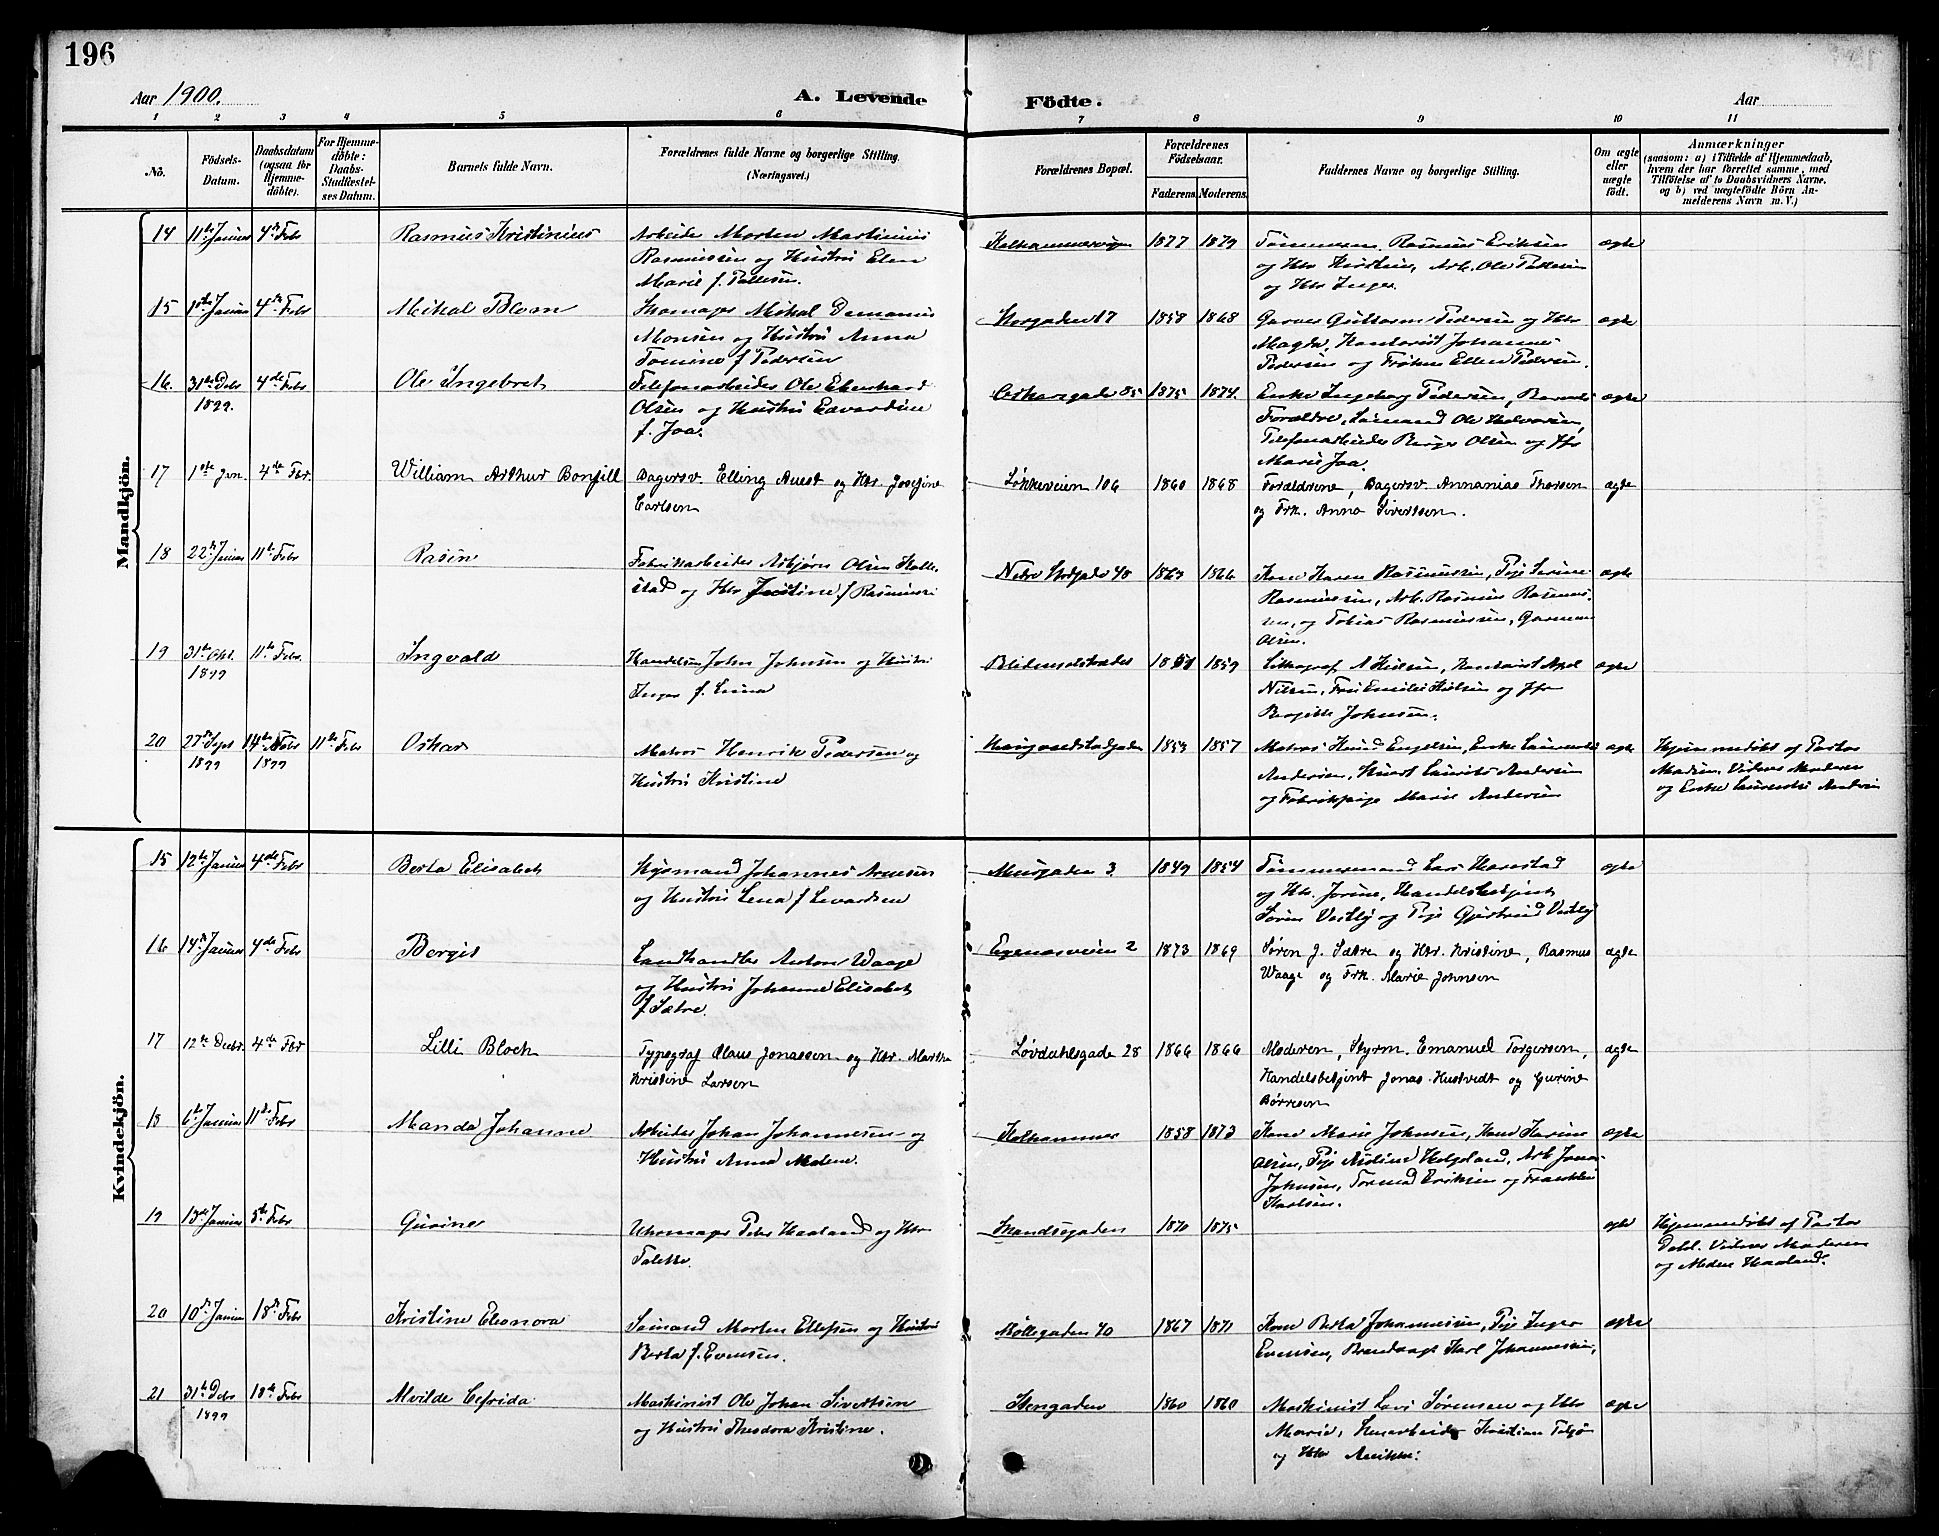 196
Aar 1900.
A. Levende Födte.
Aar
1 2 3 4 5 6 7 8 9 10 11
No.
Födsels-Datum.
Daabsdatum (ogsaa for Hjemmedöbte).
For Hjemmedöbte: Daabs-Stadfæstelses Datum.
Barnets fulde Navn.
Forældrenes fulde Navne og borgerlige Stilling. (Næringsvei.)
Forældrenes Bopæl.
Forældrenes Födselsaar.
Faderens Moderens.
Faddernes Navne og borgerlige Stilling.
Om ægte eller uægte födt.
Anmærkninger
(saasom: a) i Tilfælde af Hjemmedaab, hvem der har forrettet samme, med Tilföielse af to Daabsvidners Navne, og b) ved uægtefödte Börn Anmelderens Navn m. V.)
Mandkjön.
14 11te Januar 4de Febr Rasmus Kristinius
Arbeider Morten Martinius
Rasmussen og Hustru Elen
Marie f. Pallesen.
1877 1879
Tømmerm. Rasmus Eriksen
og Hstr Kirstine, Arb. Ole Pallesen
og Hstr Inger.
ægte
15 1ste Januar 4de Febr Mikal Blom
Skomager Mikal Damanius
Monsen og Hustru Anna
Tomine f Pedersen
Storgaden 17 1858 1868
Garver Guttorm Pedersen og Hstr
Magda, Kontorist Johannes
Pedersen og Frøken Ellen Pedersen.
ægte
16. 31te Debr 1899. 4de Febr Ole Ingebret
Telefonarbeider Ole Eberhard
Olsen og Hustru Edvardine
f. Joa.
Oskarsgade 85 1875 1874.
Enke Ingeborg Pedersen, Barnets
Forældre, Sømand Ole Halvorsen,
Telefonarbeider Børge Olsen og Jfr
Marie Joa.
ægte
17 1ste Jan. 4de Fbr. William Arthur Bonfill
Bagersv. Elling Auest og Hstr. Josefine
Carlsen
Løkkeveien 106 1860 1868
Forældrene, Bagersv. Annanias Thorsen
og Frk. Anna Sivertsen.
ægte
18 22de Januar 11te Febr Rasin
Fabrikarbeider Asbjørn Olsen Kolle-
stad og Hstr Justine f Rasmussen
Nedre Holgade 40 1863 1866
Kone Karen Rasmussen, Pige Serine
Rasmussen, Arb. Rasmus Rasmus-
sen, og Tobias Rasmussen,
Olsen.
ægte
19 31te Okt. 1899 11te Febr. Ingvald
Handelsm John Johnsen og Hustru
Inger f. Lima
1859
Lithograf N Nielsen, Kontorist Axel
Nilsen, Fru Emilie Nielsen og Jfr
Bergitte Johnsen.
ægte
20 27de Sept 1899 14de Nvbr 1899 11te Febr Oskar
Matros Henrik Pedersen og
Hustru Kristine
Kongsgaardsbakgaden 1853 1857
Matros Knud Engelsen, Enke Laurentse
Andersen, Stuert Laurits Andersen
og Fabrikpige Marie Andersen
ægte
Hjemmedøbt af Pastor
Madsen. Vidner Moderen
og Enke Laurentse Andersen
Kvindekjön.
15 12te Januar 4de Febr Berta Elisabet
Sjømand Johannes Arnesen
og Hustru Lena f Levardsen
Musgaden 3 1849 1854
Tømmermand Lars Harestad
og Hstr. Jorine, Handelsbetjent
Søren Vestly og Pige Gjertrud Vestly
ægte
16 14de Januar 4de Febr Bergit
Landhandler Anton Waage
og Hustru Johanne Elisabet
f. Sætre.
Egenæsveien 2 1873 1869
Søren J. Sætre og Hstr. Kristine, Rasmus
Waage og Frk. Marie Johnsen
ægte
17 12te Decbr. 4de Fbr Lilli Bloch
Typograf Claus Jonassen og Hstr. Marthe
Kristine Larsen
Løvdahlsgade 28 1866 1866
Moderen, Styrm. Emanuel Torgersen,
Handelsbetjent Jonas Hustvedt og Gurine
Børresen
ægte
18 6te Januar 11te Febr Manda Johanne
Arbeider Johan Johannesen og
Hustru Anna Malene.
Kalhammer 1858 1873
Kone Marie Johnsen, Kone Karine
Olsen, Pige Adline Helgeland, Arb. Jonas
Johnsen, Tormod Eriksen og Franklin
Karlsen.
ægte
19 13de Januar 8de Febr Gurine
Uhrmager Peter Haaland og Hstr
Talette.
Strandgaden 1870 1875
ægte
Hjemmedøbt af Pastor
Dahl. Vidner Moderen
og Malene Haaland.
20 10de Januar 18de Febr Kristine Eleonora
Sømand Morten Ellefsen og Hustru
Berta f. Evensen.
Møllegaden 40 1867 1871
Kone Berta Johannessen, Pige Inger
Evensen, Brandvagt Karl Johannessen,
ægte
21 31te Debr 1899 18de Febr Alvilde Cefrida
Maskinist Ole Johan Sivertsen
og Hustru Theodora Kristine.
Stengaden 1860 1860
Maskinist Lars Sørensen og Hstr
Marie, Stenarbeider Kristian Talgø
og Hstr Anikke.
ægte